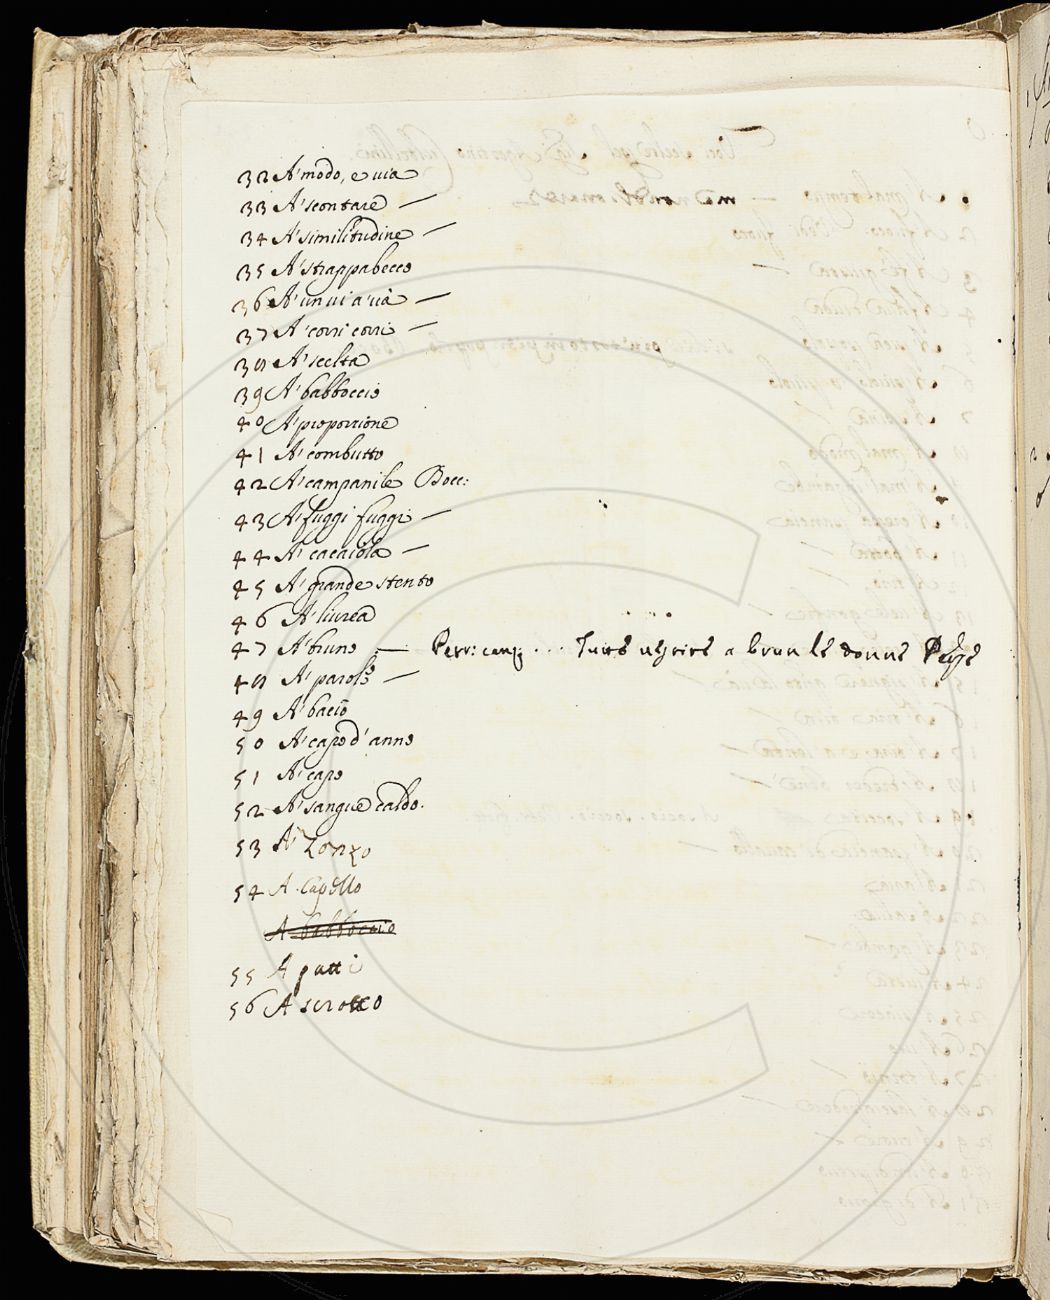 32 A' modo, e via
33 A' scontare —
34 A' similitudine —
35 A' strappabecco
36 A' un vi a via —
37 A' corri corri —
38 A' scelta
39 A' babboccio
40 A' proporzione
41 A' combutto
42 A' campanile Bocc:
43 A' fuggi fuggi —
44 A' cacaiola —
45 A' grande stento
46 A' liurea
47 A' bruno — Petr: canz ... a brun le donne
48 A' parole —
49 A' bacio
50 A' capo d'anno
51 A' capo
52 A' sangue caldo.
53 A' Zonzo
54 A Capello
A babboccio
55 A patti
56 A scrocco